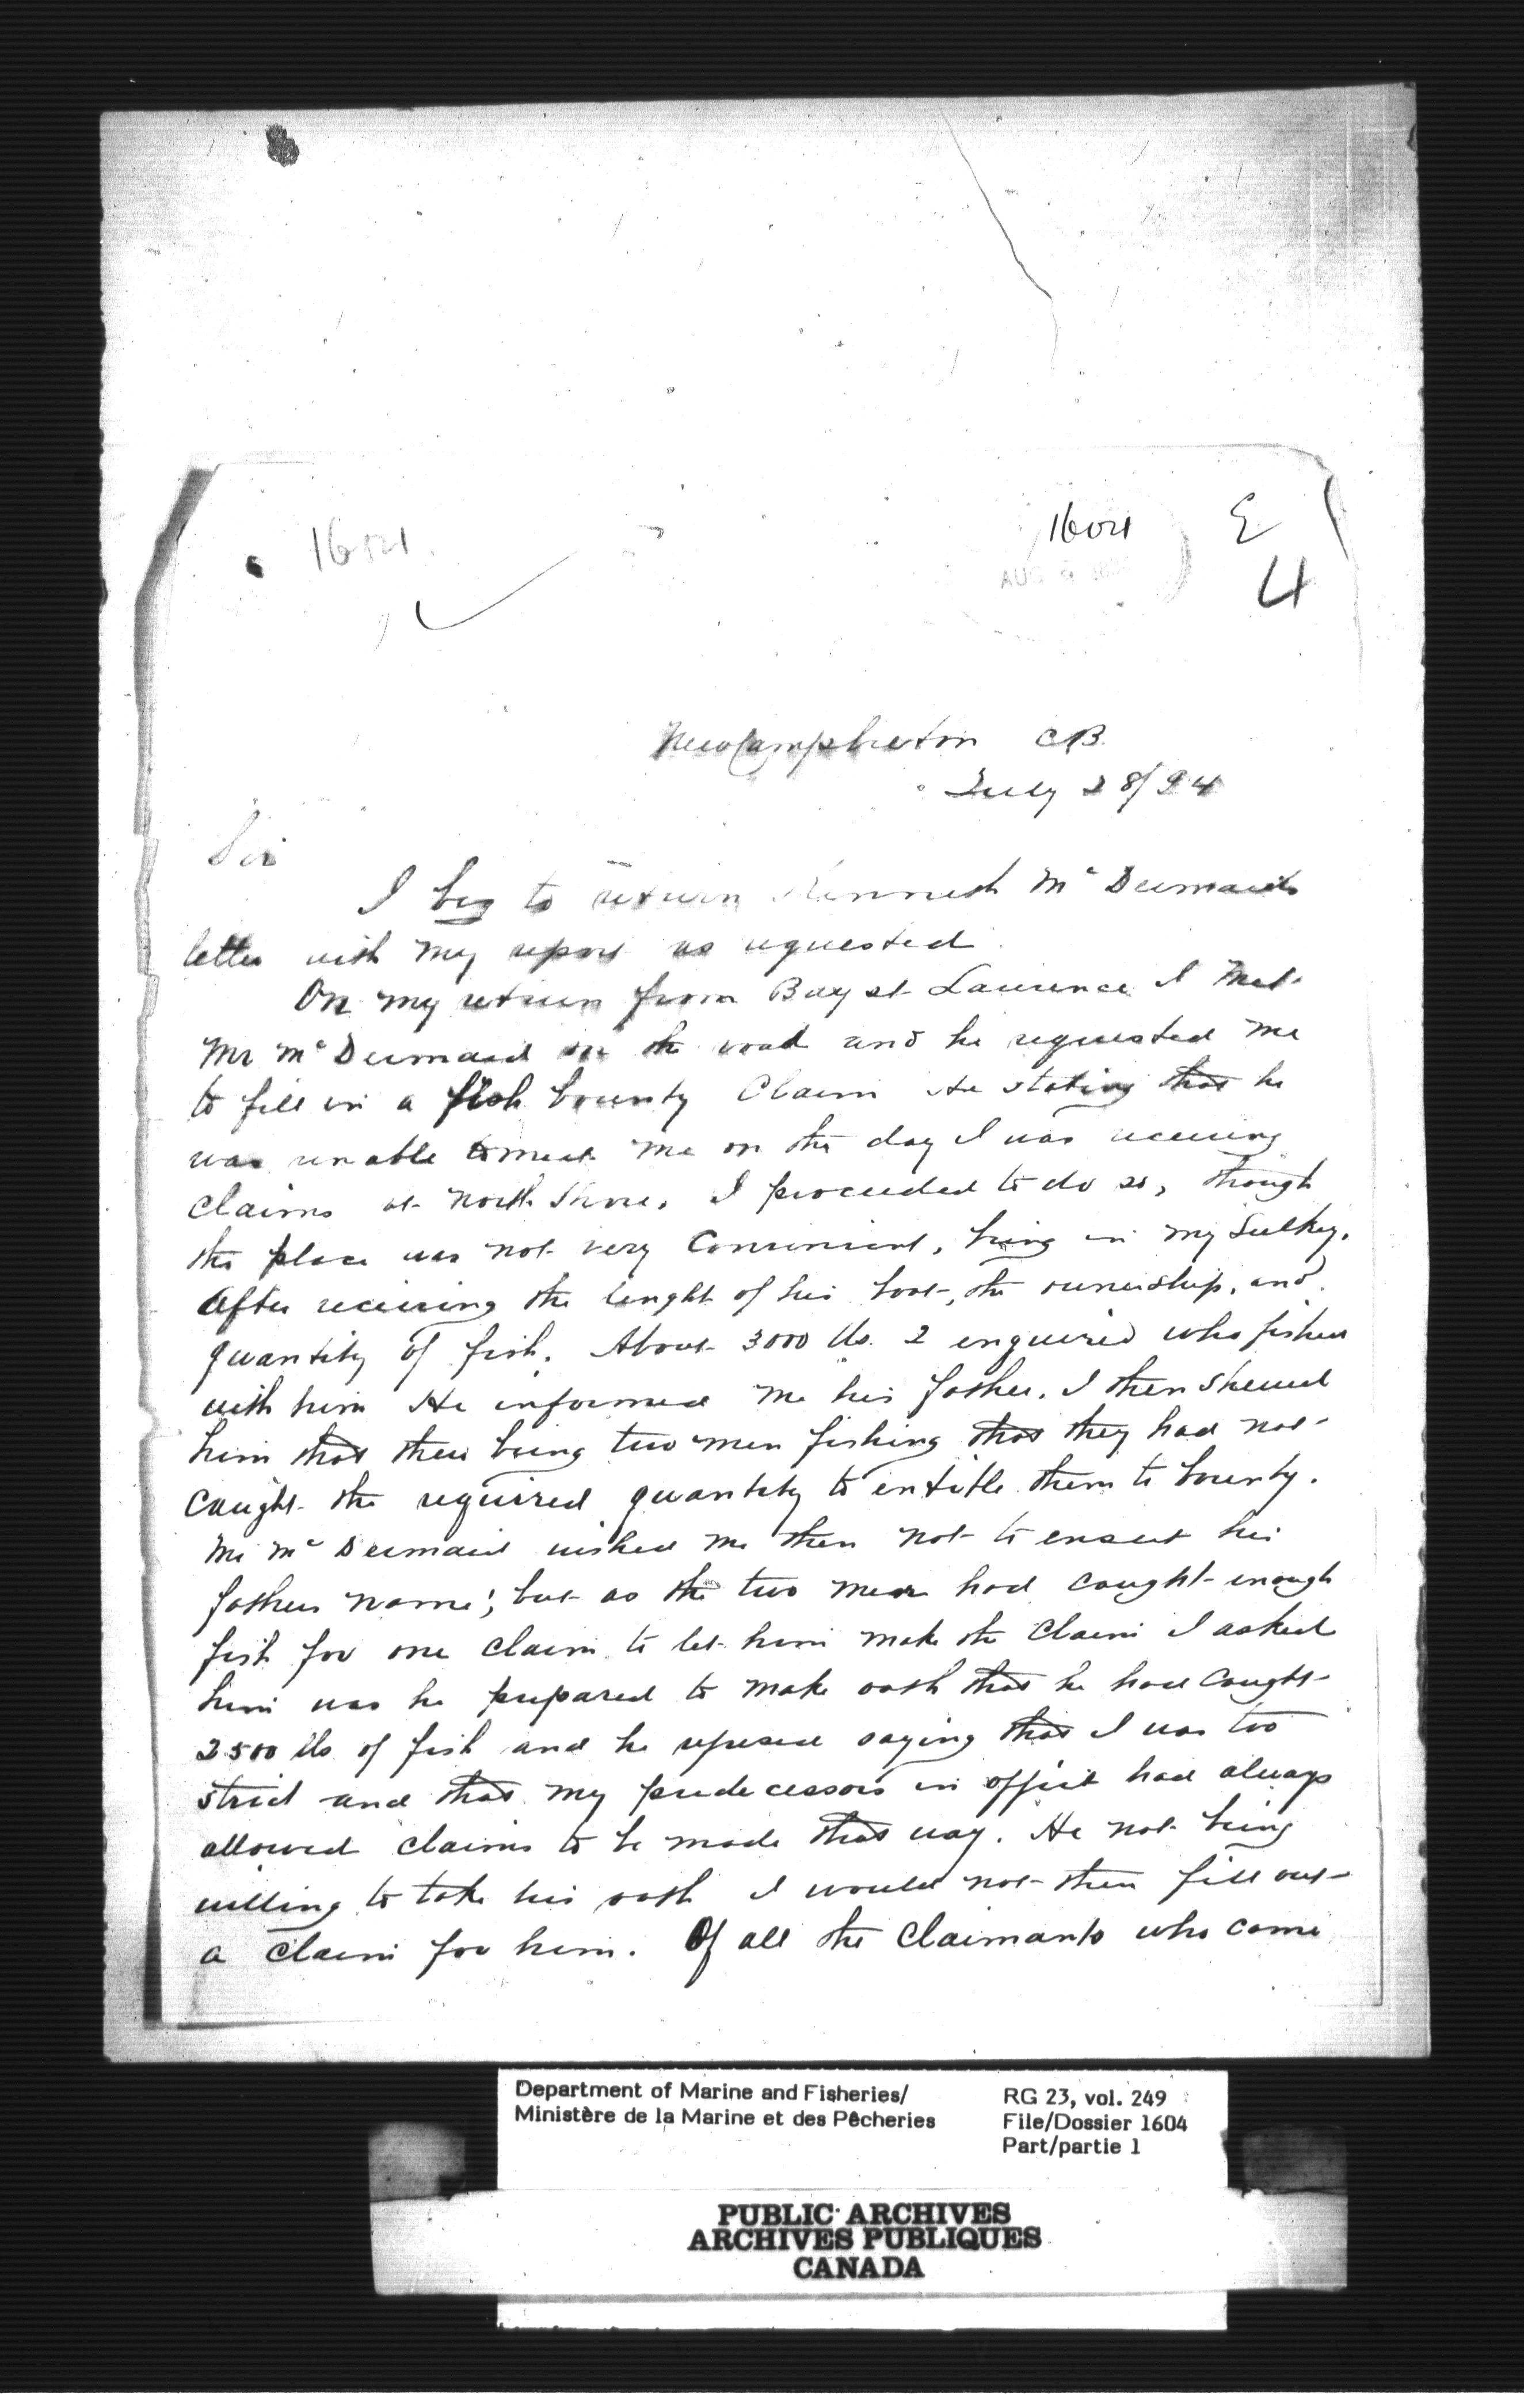 1604
1604 E
AUG 9
4
New Campbelton CB.
July 28/94
Sir
I beg to return Kenneth Mc Dermaids
letter with my report as requested.
On my return from Bay st Laurence I met
Mr Mc Dermaid on the road and he requested me
to fill in a fish bounty Claim He stating that he
was unable to meet me on the day I was receiving
claims at North Shore. I proceeded to do so, though
the place was not very Convenient, being in my Sulkey.
After receiving the lenght of his boat, the ownership, and
quantity of fish. About 3000 lbs. I enquired who fished
with him He informed me his father. I then shewed
him that there being two men fishing that they had not
caught the required quantity to entitle them to bounty.
Mr Mc Dermaid wished me then not to ensert his
fathers name; but as the two men had caught enough
fish for one claim to let him make the claim I asked
him was he prepared to make oath that he had caught
2500 lbs of fish and he refused saying that I was too
strict and that my predecessors in office had always
allowed claims to be made that way. He not being
willing to take his oath I would not then fill out
a claim for him. Of all the Claimants who came
Department of Marine and Fisheries/
Ministère de la Marine et des Pêcheries
RG 23, vol. 249
File/Dossier 1604
Part/partie 1
PUBLIC ARCHIVES
ARCHIVES PUBLIQUES
CANADA